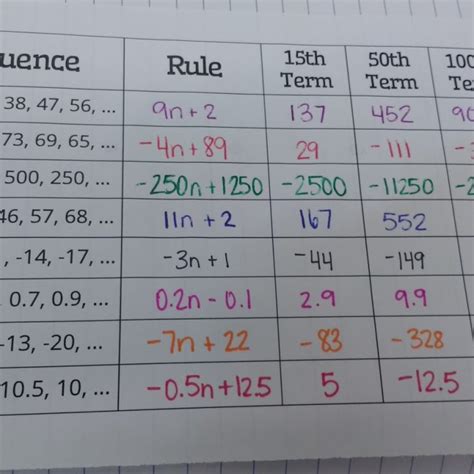 uence Rule 15th Term 50th Term 100 Te
38, 47, 56, ... 9n + 2 137 452 90
73, 69, 65, ... -4n + 89 29 -111
500, 250, ... -250n + 1250 -2500 -11250 -2
46, 57, 68, ... 11n + 2 167 552
, -14, -17, ... -3n + 1 -44 -149
0.7, 0.9, ... 0.2n - 0.1 2.9 9.9
-13, -20, ... -7n + 22 -83 -328
10.5, 10, ... -0.5n + 12.5 5 -12.5